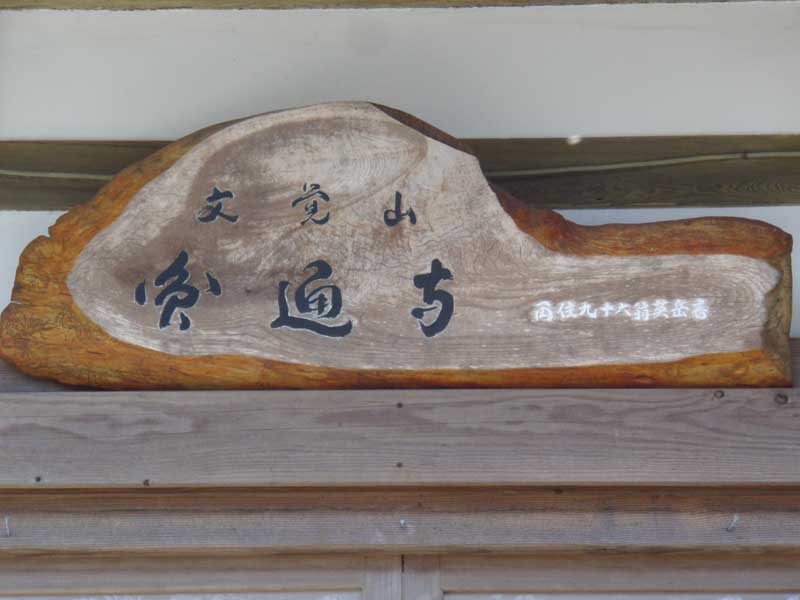 文覚山
圓通寺
再住九十六翁英岳書